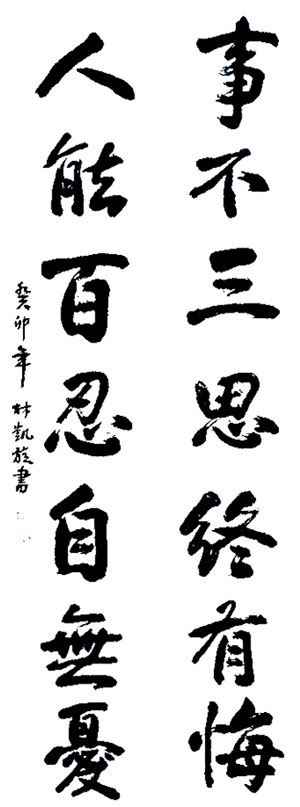 事不三思終有悔
人能百忍自無憂
癸卯年 林凱旋書